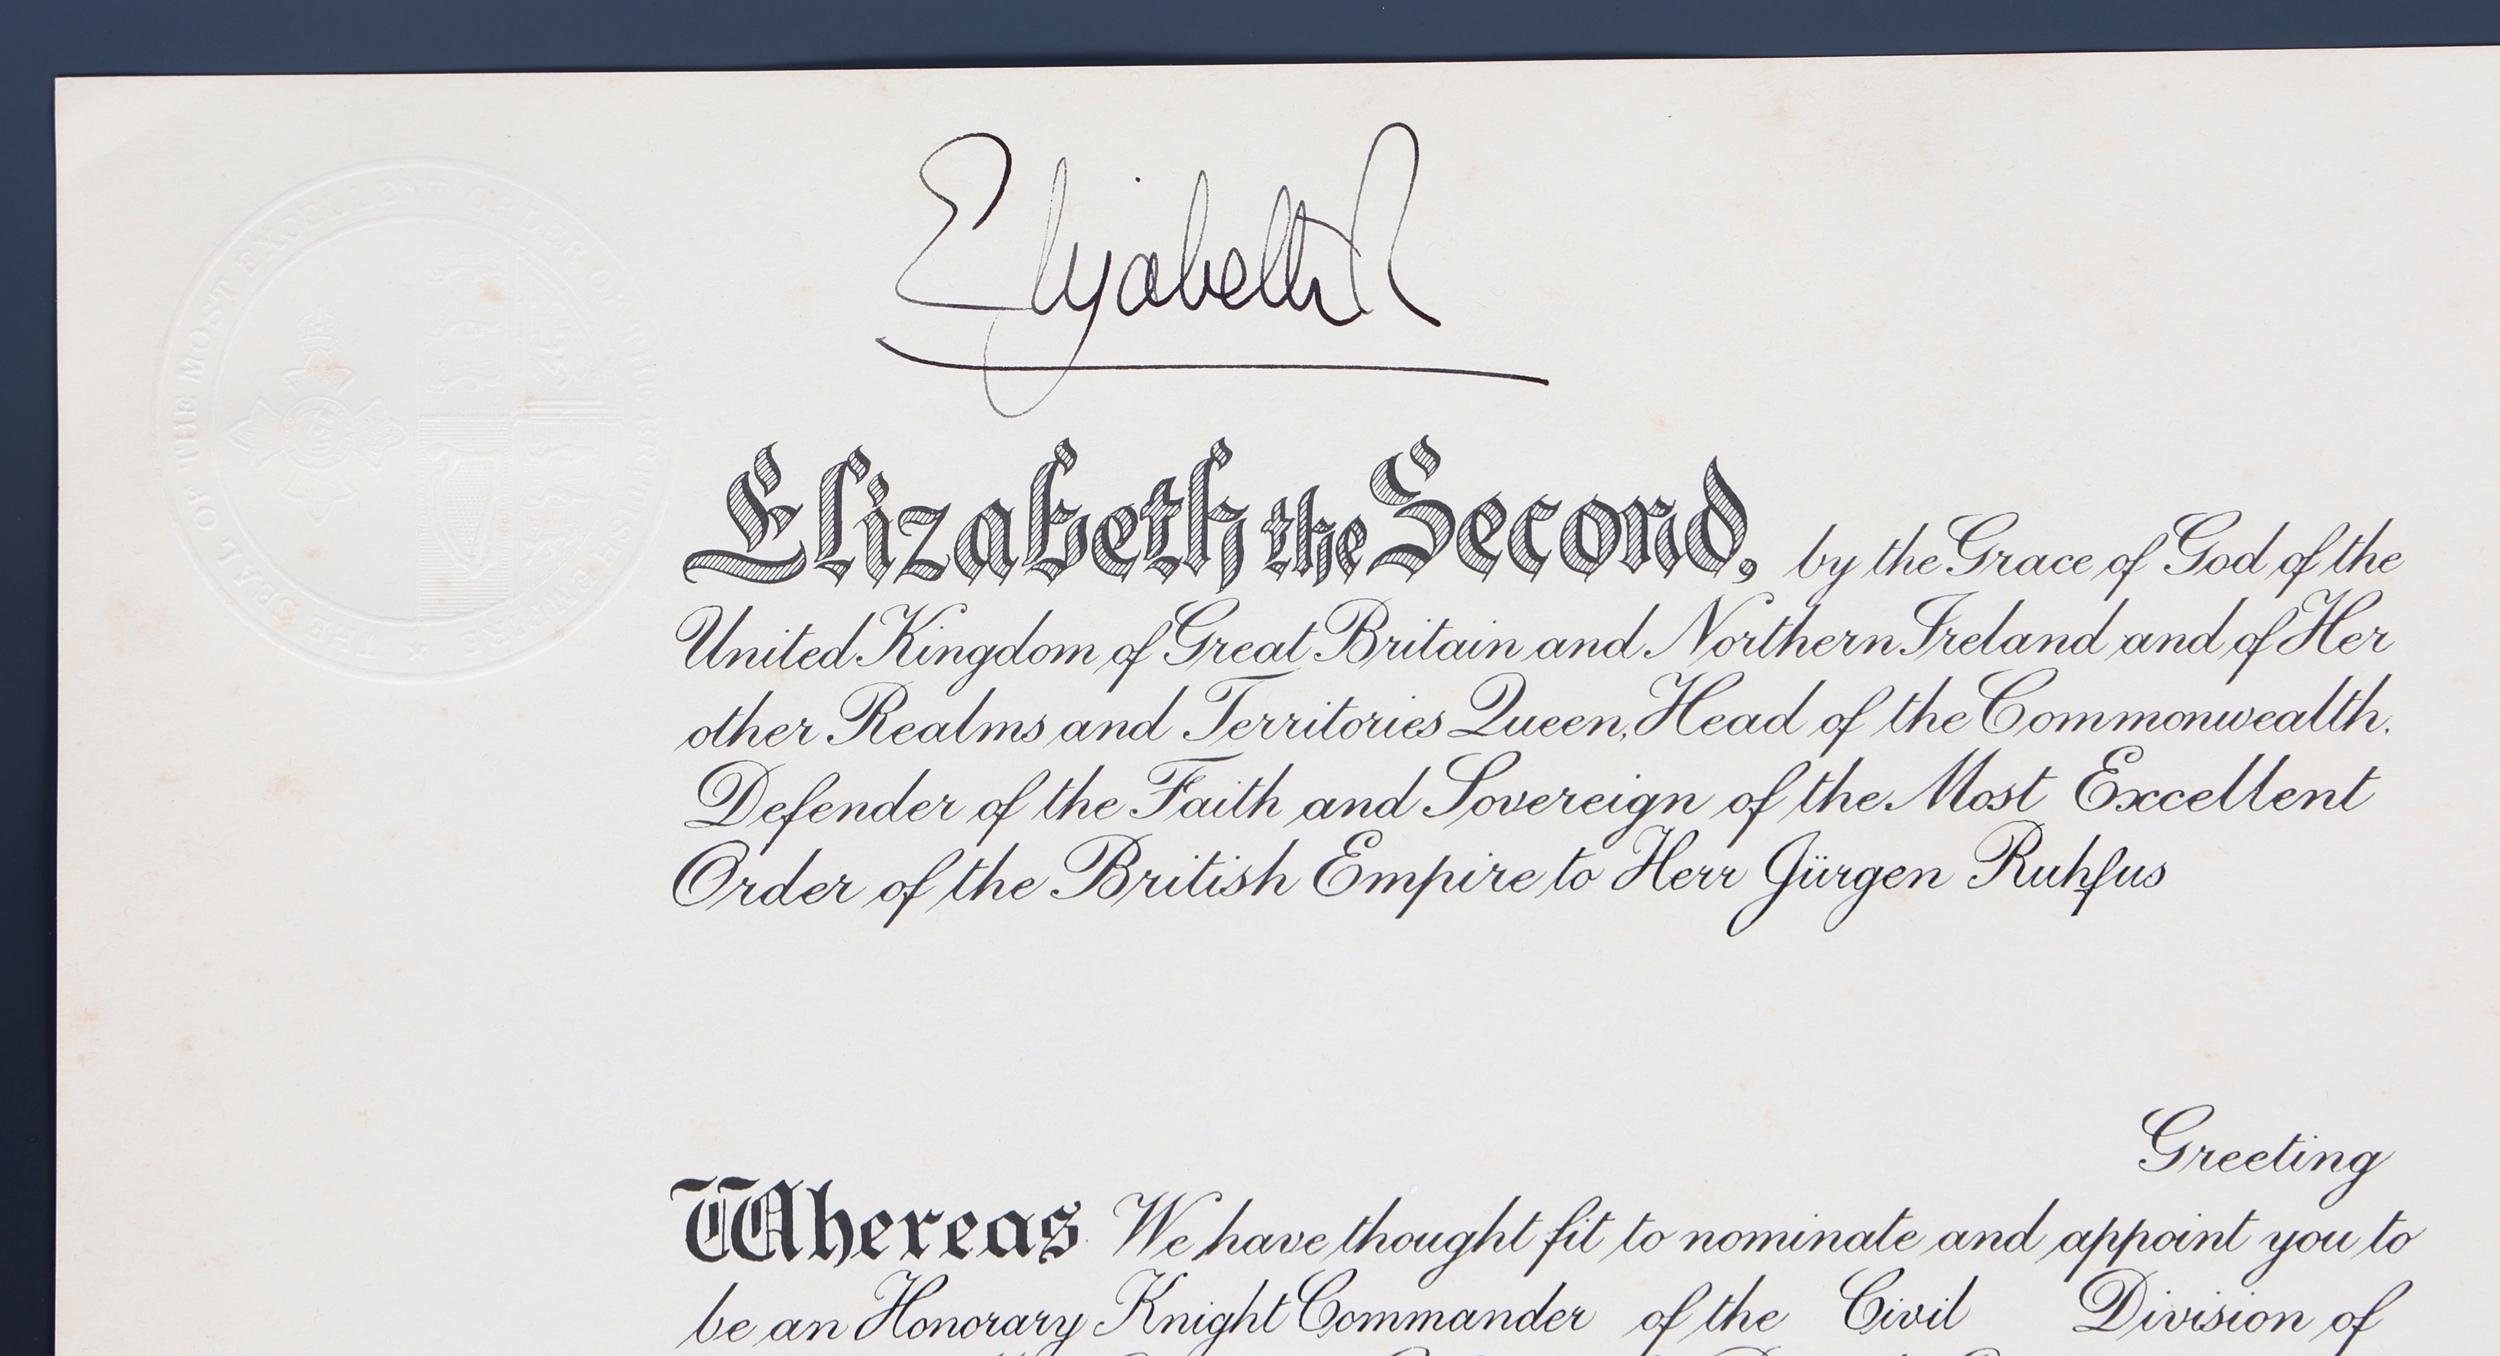 THE SEAL OF THE MOST EXCELLENT ORDER OF THE BRITISH EMPIRE
Elizabeth R
Elizabeth the Second, by the Grace of God of the
United Kingdom of Great Britain and Northern Ireland and of Her
other Realms and Territories Queen, Head of the Commonwealth.
Defender of the Faith and Sovereign of the Most Excellent
Order of the British Empire to Herr Jürgen Ruhfus
Greeting
Whereas We have thought fit to nominate and appoint you to
be an Honorary Knight Commander of the Civil Division of